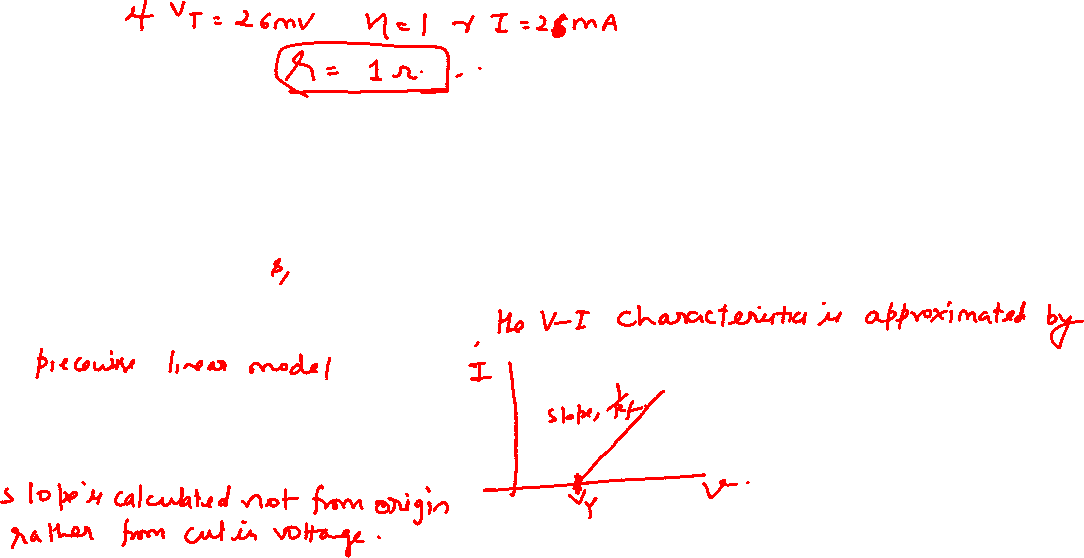 If V_T = 26mV η = 1 & I = 26mA
r = 1Ω.
the V-I characteristic is approximated by
piecewise linear model
I
slope, 1/Rf
Vγ
V
slope is calculated not from origin
rather from cut in voltage.